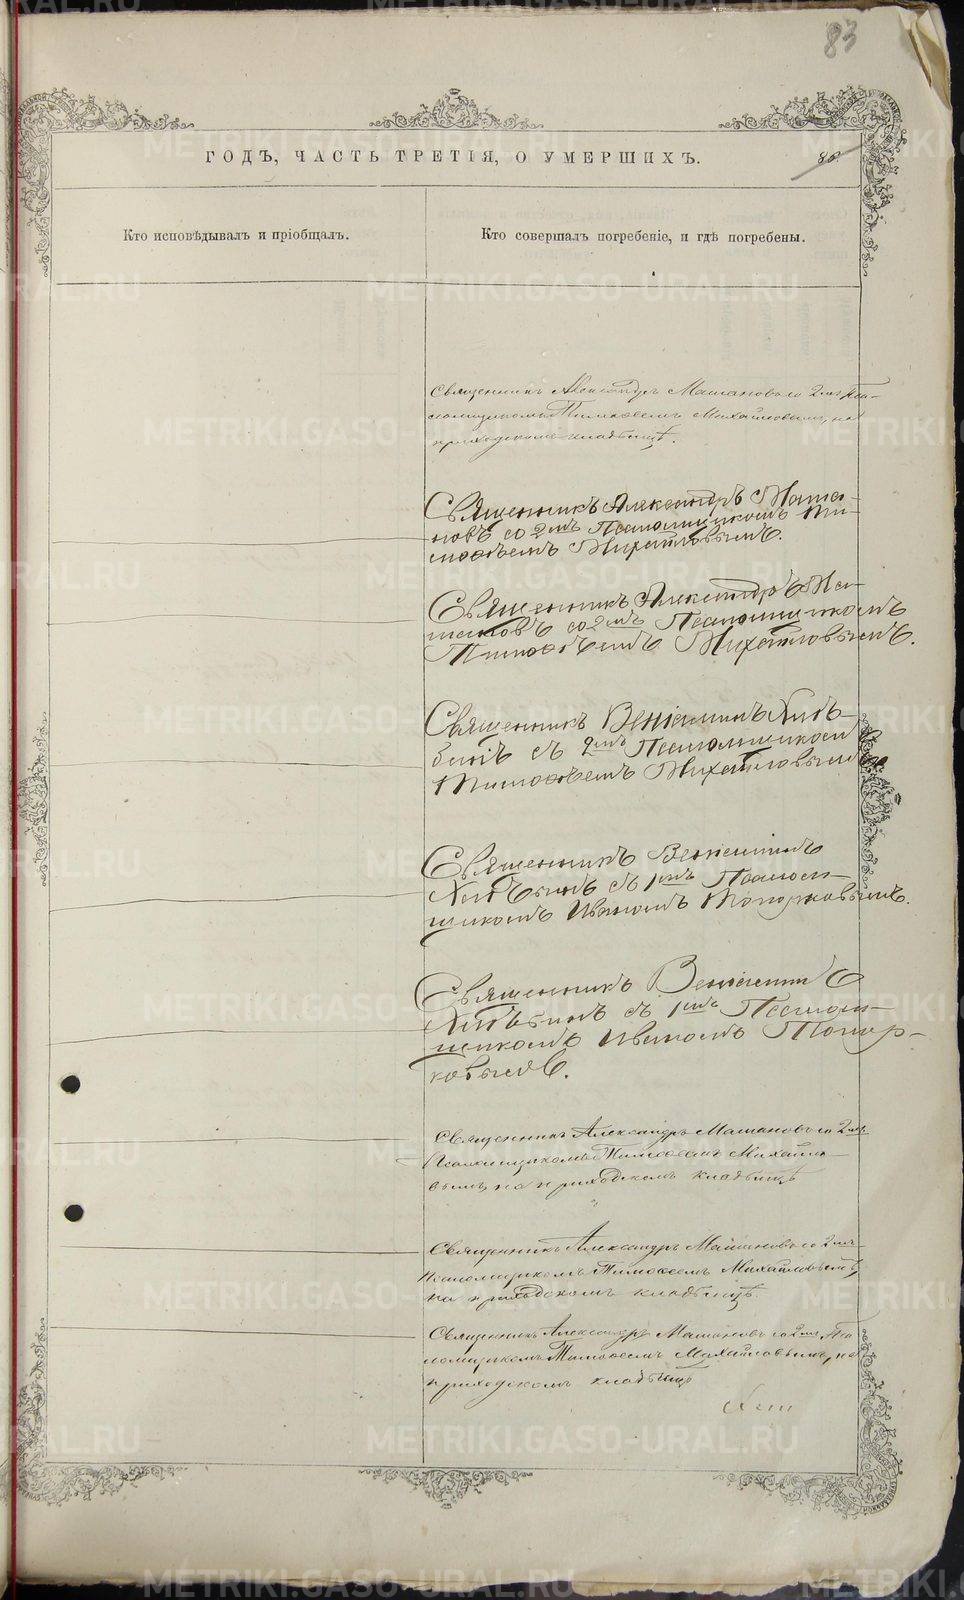 83
ГОДЪ, ЧАСТЬ ТРЕТІЯ, О УМЕРШИХЪ.
80.
Кто исповѣдывалъ и пріобщалъ.
Кто совершалъ погребеніе, и гдѣ погребены.
Священникъ Александръ Машановъ со 2мъ Пса-
ломщикомъ Тимоѳеемъ Михайловымъ, на
приходскомъ кладбищѣ.
Священникъ Александръ Маша-
новъ со 2мъ Псаломщикомъ Ти-
моѳѣемъ Михайловымъ.
Священникъ Александръ Ма-
шановъ со 2мъ Псаломщикомъ
Тимоѳѣемъ Михайловымъ.
Священникъ Веніаминъ Хлѣ-
бинъ съ 2мъ Псаломщикомъ
Тимоѳѣемъ Михайловымъ
Священникъ Веніаминъ
Хлѣбинъ съ 1мъ Псалом-
щикомъ Иваномъ Топорковымъ.
Священникъ Веніаминъ
Хлѣбинъ съ 1мъ Псалом-
щикомъ Иваномъ Топор-
ковымъ.
Священникъ Александръ Машановъ со 2мъ
Псаломщикомъ Тимоѳеемъ Михайло-
вымъ, на приходскомъ кладбищѣ
Священникъ Александръ Машановъ со 2мъ
Псаломщикомъ Тимоѳеемъ Михайловымъ,
на приходскомъ кладбищѣ.
Священникъ Александръ Машановъ со 2мъ Пса
ломщикомъ Тимоѳеемъ Михайловымъ, на
приходскомъ кладбищѣ
METRIKI.GASO-URAL.RU